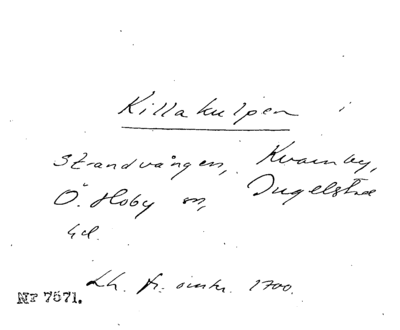 Killakulpen i
Strandvången, Kvarnby,
Ö. Hoby sn, Ingelstad
hd.
Lh. fr. omkr. 1700.
Nr 7571.